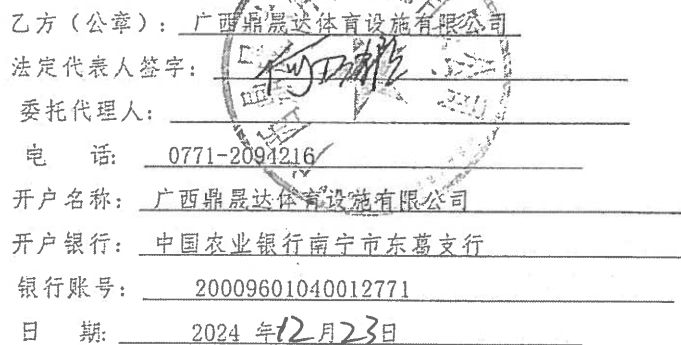 乙方（公章）：广西鼎晟达体育设施有限公司
法定代表人签字：
委托代理人：
电 话： 0771-2094216
开户名称：广西鼎晟达体育设施有限公司
开户银行：中国农业银行南宁市东葛支行
银行账号： 20009601040012771
日 期： 2024 年12月23日